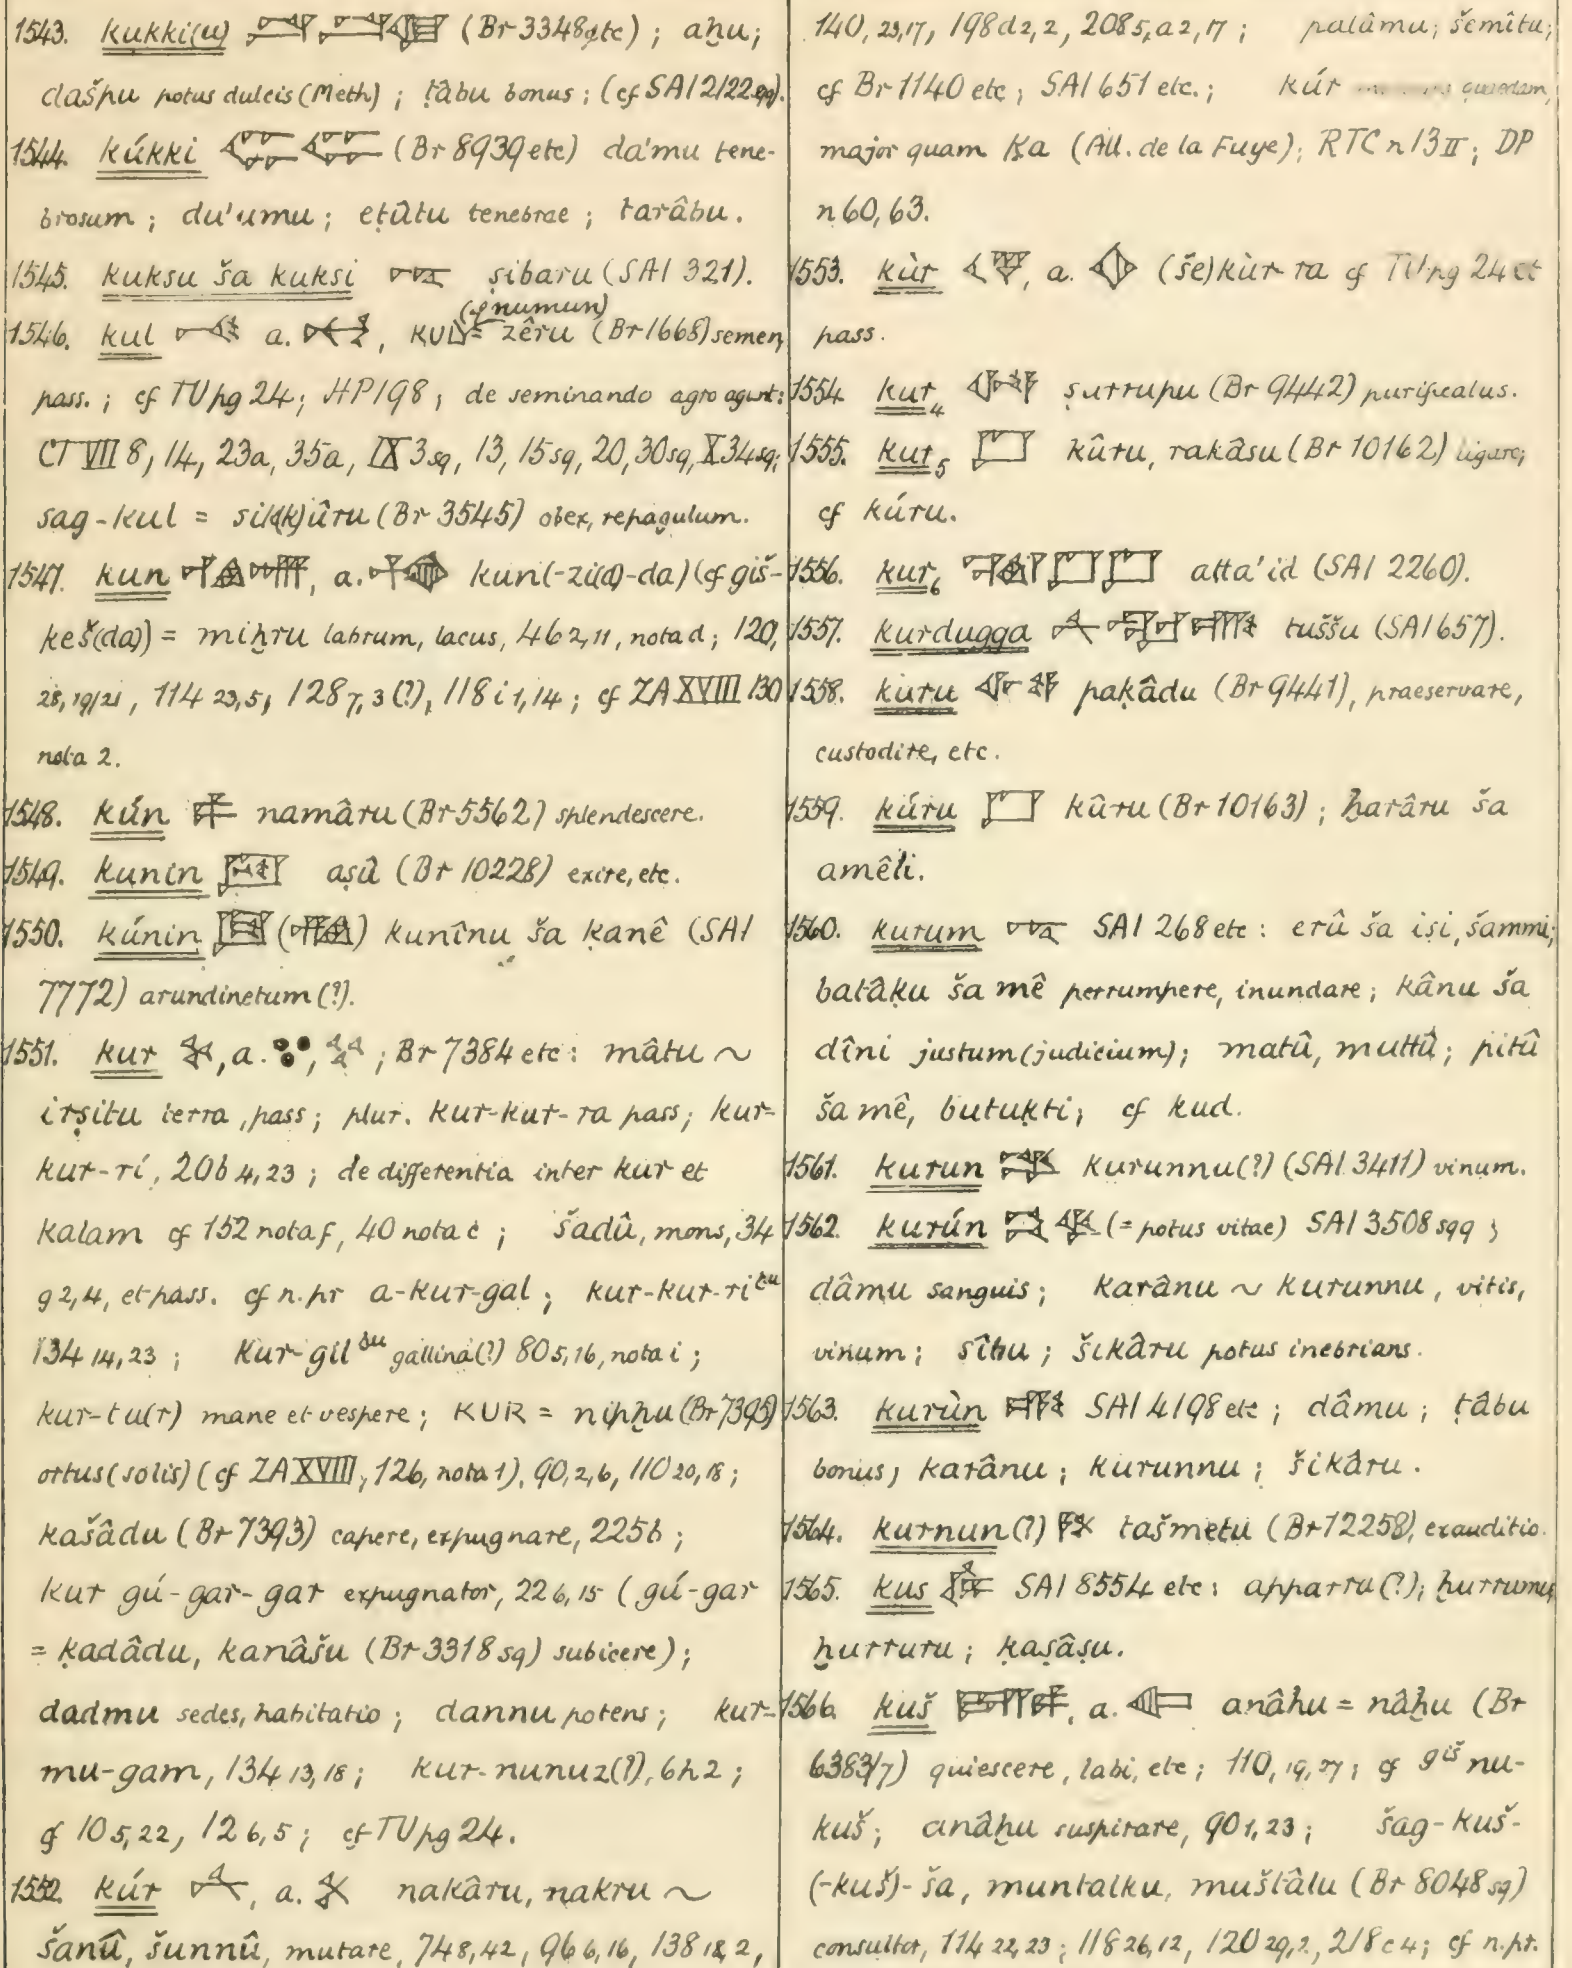 1543. kukki(u) (Br 3348 etc) ; aḫu;
dašpu potus dulcis (Meth) ; ṭâbu bonus ; (cf SAI 2122 sq).
1544. kúkki (Br 8939 etc) da'mu tene-
brosum ; du'umu ; eṭûtu tenebrae ; tarâbu.
1545. kuksu ša kuksi ṣibaru (SAI 321).
(cf numun)
1546. kul a. , KUL = zêru (Br 1668) semen,
pass. ; cf TU pg 24 ; HP 198 ; de seminando agro agunt:
CT VII 8, 14, 23a, 35a, IX 3 sq, 13, 15 sq, 20, 30 sq, X 34 sq;
sag-kul = sik(k)ûru (Br 3545) obex, repagulum.
1547. kun , a. kun(-zi(d)-da) (cf giš-
keš(da)) = miḫru labrum, lacus, 46 2,11, nota d; 120,
28, 19/21 , 114 23,5, 128 7,3 (?), 118 i 1,14 ; cf ZA XVIII 130
nota 2.
1548. kún namâru (Br 5562) splendescere.
1549. kunin aṣû (Br 10228) exire, etc.
1550. kúnin ( ) kunînu ša ḳanê (SAI
7772) arundinetum (?).
1551. kur , a. , ; Br 7384 etc : mâtu ~
irṣitu terra, pass ; plur. kur-kur-ra pass ; kur-
kur-ri, 20 b 4,23 ; de differentia inter kur et
kalam cf 152 nota f, 40 nota c ; šadû, mons, 34
g 2,4, et pass. cf n.pr a-kur-gal ; kur-kur-ri
134 14,23 ; kur-gil gallina (?) 80 5,16, nota i ;
kur-tu(r) mane et vespere ; KUR = nipḫu (Br 7395)
ortus (solis) (cf ZA XVIII, 126, nota 1). 90,2,6, 110 20,18 ;
kašâdu (Br 7393) capere, expugnare, 225b ;
kur gú-gar-gar expugnator, 22 6,15 (gú-gar
= ḳadâdu, kanâšu (Br 3318 sq) subicere) ;
dadmu sedes, habitatio ; dannu potens ; kur-
mu-gam, 134 13,18 ; kur-nunuz(?), 6 h 2 ;
cf 10 5,22, 12 6,5 ; cf TU pg 24.
1552. kúr , a. nakâru, nakru ~
šanû, šunnû, mutare, 74 8,42, 96 6,16, 138 18,2,
140, 23,17, 198 d 2,2, 208 5, a 2,17 ; palâmu ; šemîtu ;
cf Br 1140 etc ; SAI 651 etc. ; kúr quaedam,
major quam Ḳa (All. de la Fuye) ; RTC n 13 II ; DP
n 60, 63.
1553. kùr , a. (še)kùr-ra cf TU pg 24 et
pass.
1554. kur4 ṣurrupu (Br 9442) purificatus.
1555. kur5 kûru, rakâsu (Br 10162) ligare;
cf kúru.
1556. kur6 atta'id (SAI 2260).
1557. kurdugga tuššu (SAI 657).
1558. kuru paḳâdu (Br 9441), praeservare,
custodire, etc.
1559. kúru kûru (Br 10163) ; ḫarâru ša
amêli.
1560. kurum SAI 268 etc : erû ša iṣi, šammi;
batâḳu ša mê perrumpere, inundare ; kânu ša
dîni justum (judicium) ; matû, muttû ; pitû
ša mê, butuḳti ; cf kud.
1561. kurun kurunnu(?) (SAI 3411) vinum.
1562. kurún (= potus vitae) SAI 3508 sqq ;
dâmu sanguis ; karânu ~ kurunnu, vitis,
vinum ; sîbu ; šikâru potus inebrians.
1563. kurùn SAI 4198 etc ; dâmu ; ṭâbu
bonus ; karânu ; kurunnu ; šikâru.
1564. kurnun(?) tašmetu (Br 12258), exauditio.
1565. kus SAI 8554 etc : apparru(?) ; ḫurrumu,
ḫurruru ; ḳaṣâṣu.
1566. kuš , a. anâhu = nâḫu (Br
6383/7) quiescere, labi, etc ; 110, 19, 27 ; cf giš nu-
kuš ; anâḫu suspirare, 90 1,23 ; šag-kuš-
(-kuš)-ša, muntalku, muštâlu (Br 8048 sq)
consultor, 114 22,23 ; 118 26,12, 120 29,2, 218 c 4 ; cf n.pr.